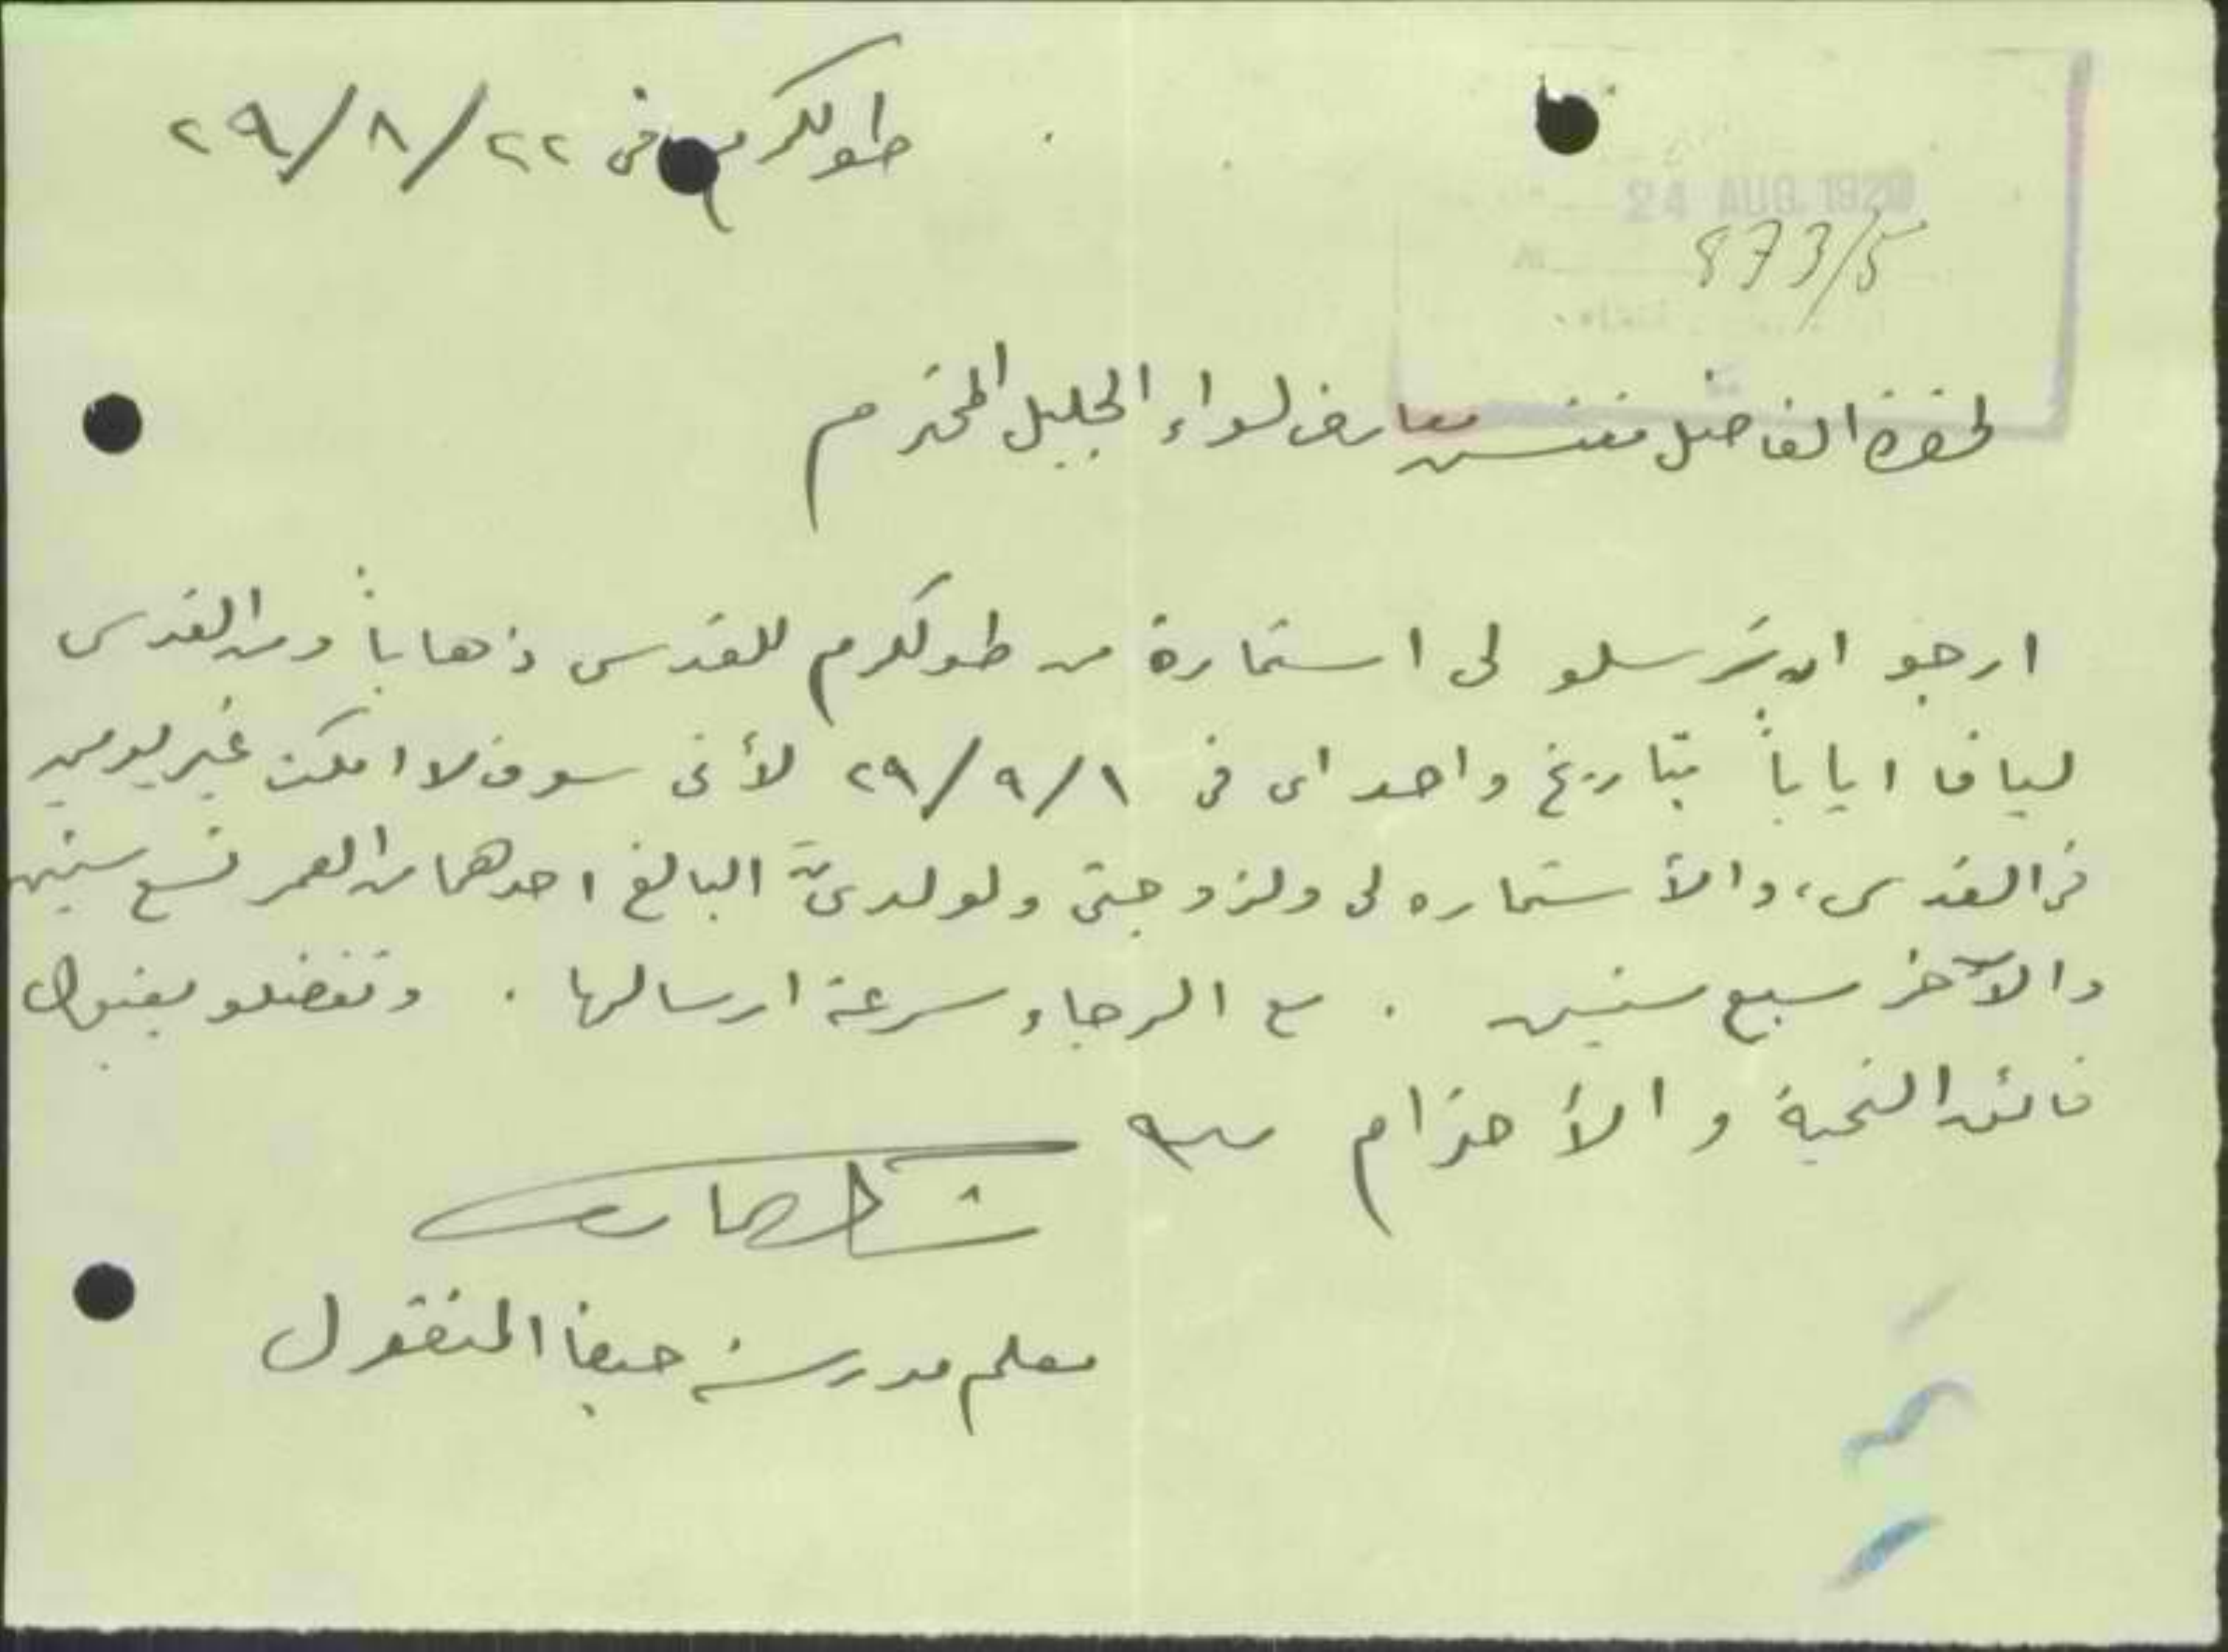 طولكرم في ٢٩/٨/٢٢
24 AUG. 1929
873/5
لحضرة الفاضل مفتش معارف لواء الجليل المحترم
ارجو ان ترسلو لي استمارة من طولكرم للقدس ذهاباً ومن القدس
ليافا اياباً بتاريخ واحد اى في ٢٩/٩/١ لأني سوف لا امكث غير يومين
في القدس، والأستماره لى ولزوجتي ولولدىّ البالغ احدهما من العمر تسع سنين
والآخر سبع سنين . مع الرجاء سرعة ارسالها . وتفضلو بقبول
فائق التحية والأحترام
معلم مدرسة حيفا المنقول